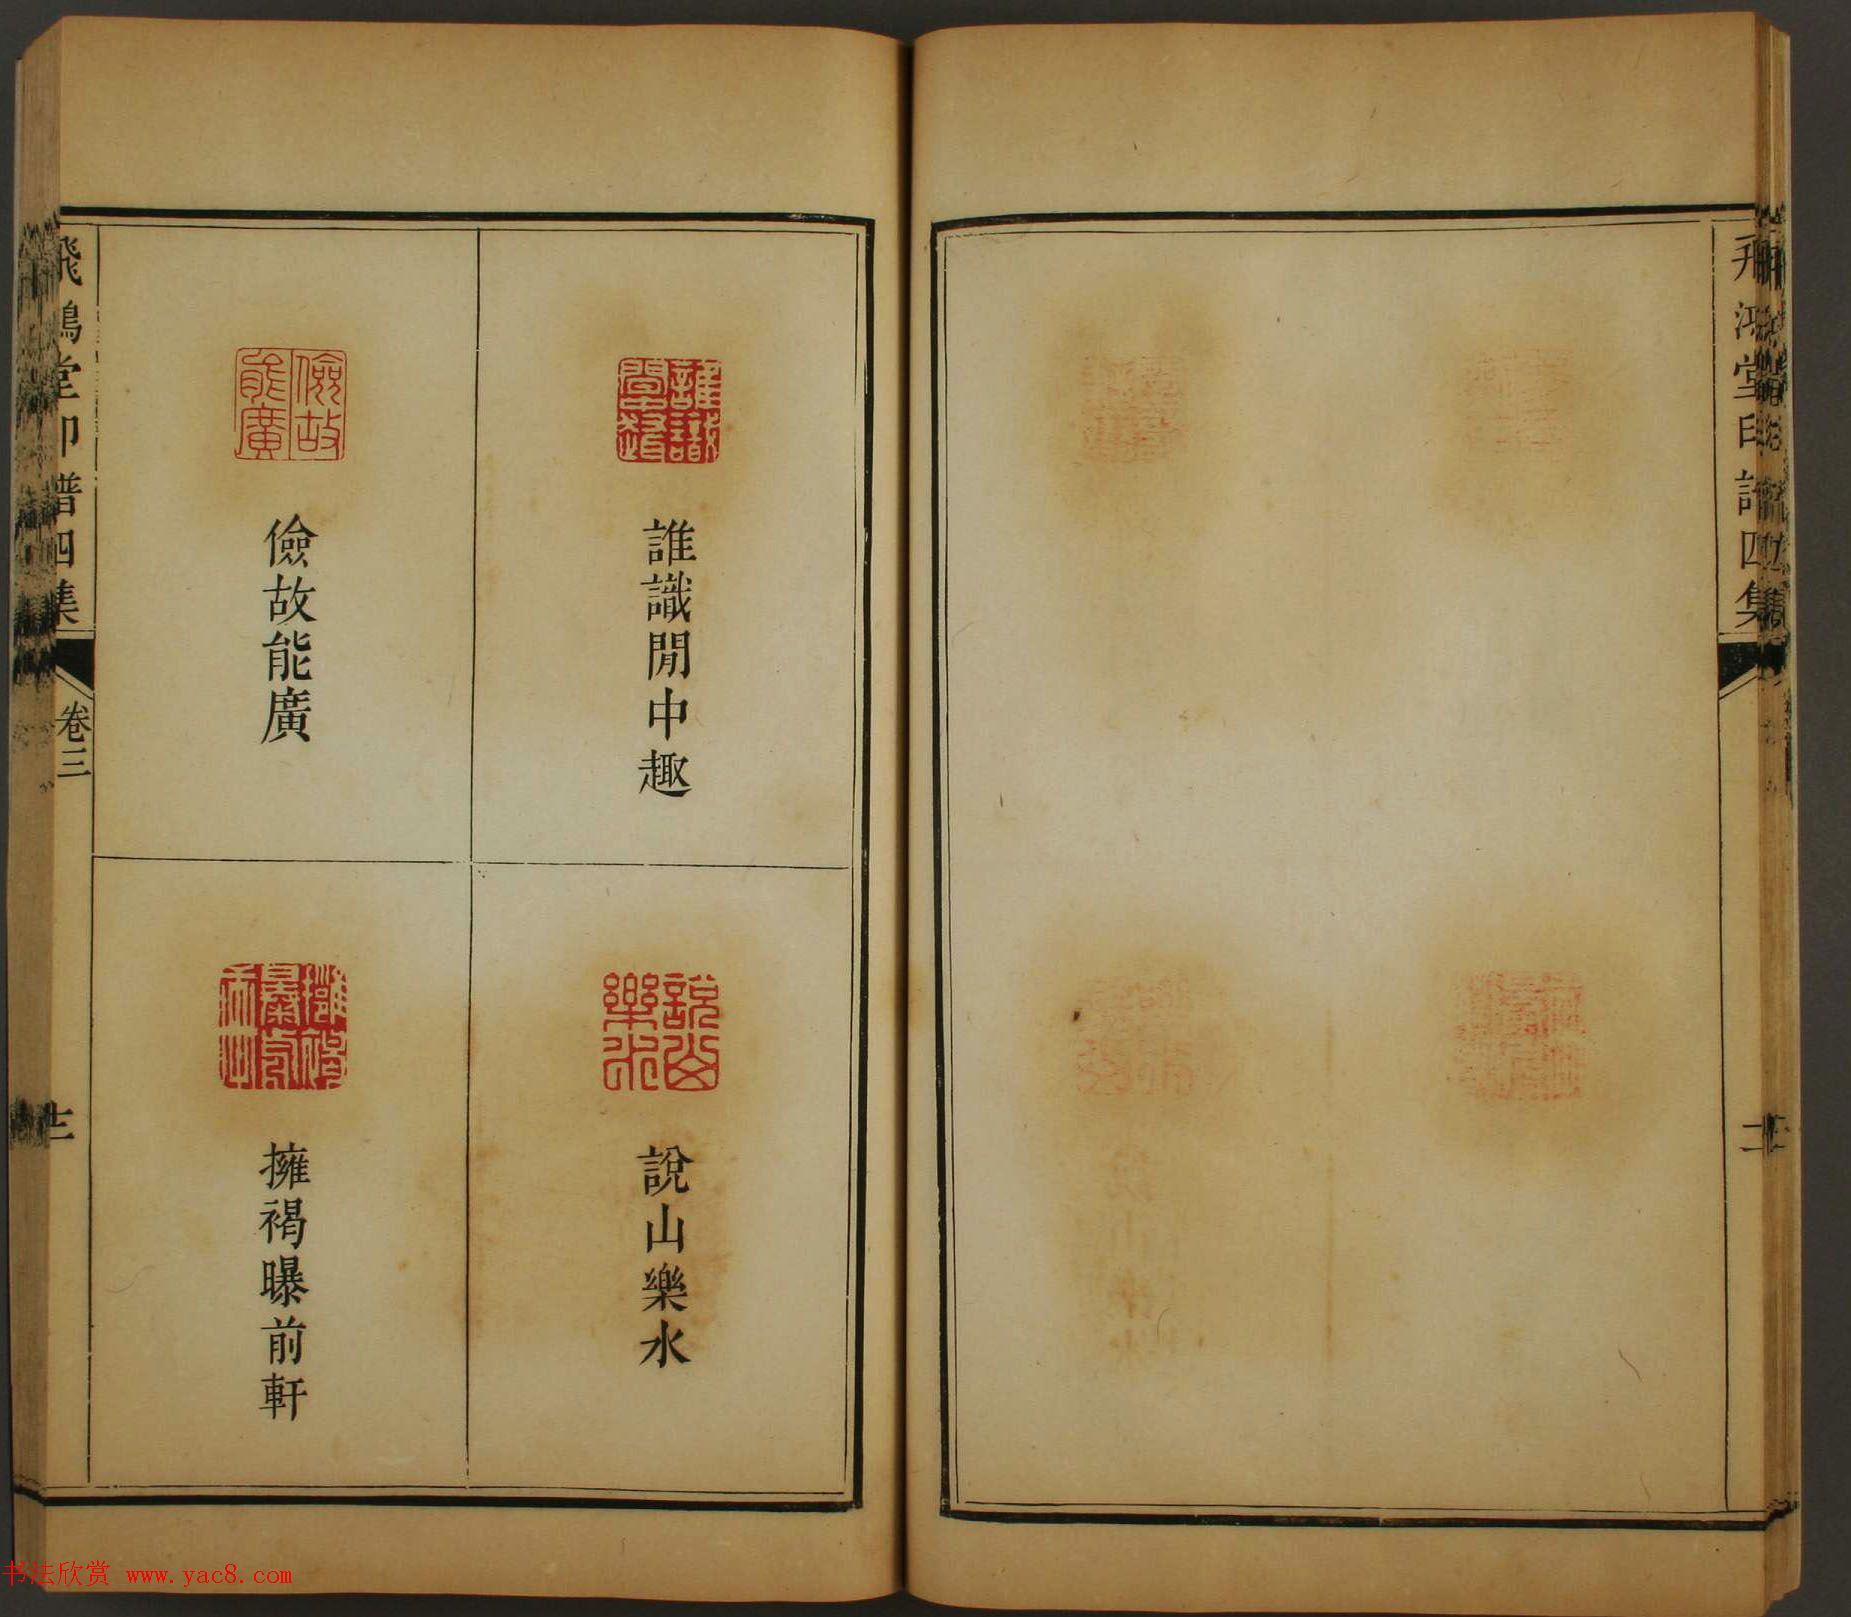 飛鴻堂印譜四集
誰識閒中趣
說山樂水
儉故能廣
擁褐曝前軒
飛鴻堂印譜四集
卷三
书法欣赏 www.yac8.com